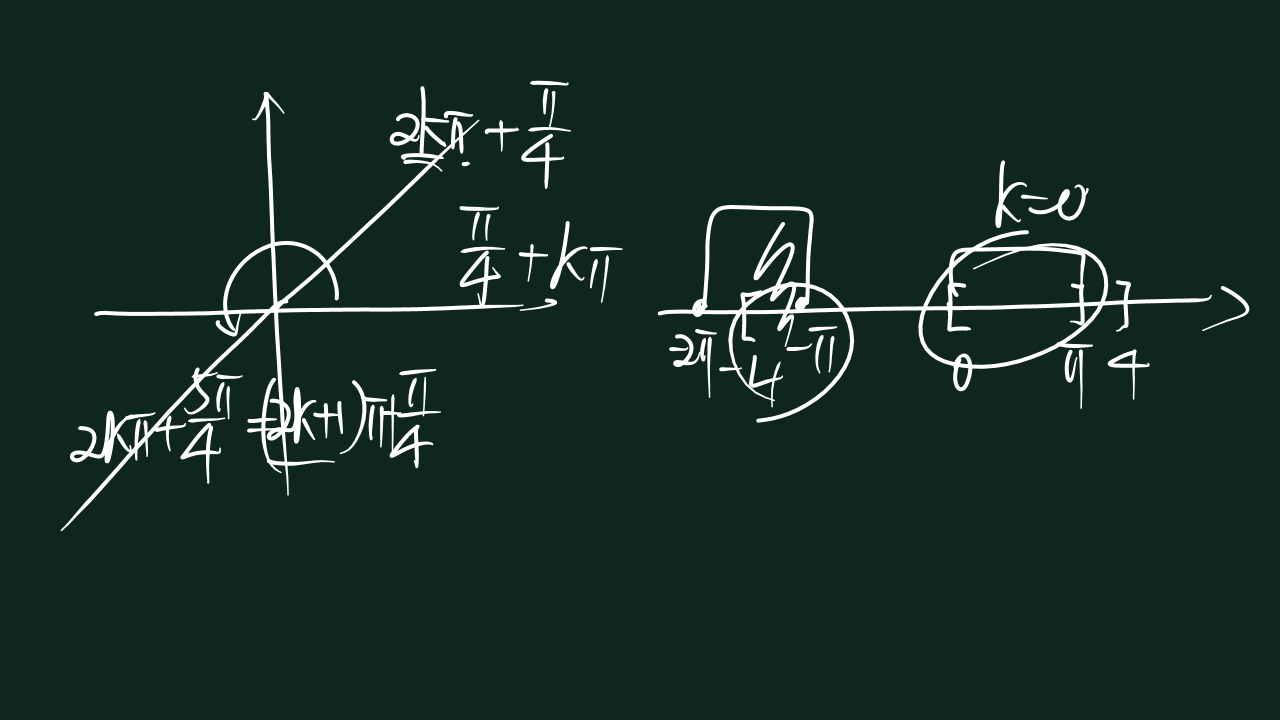 2kπ + π/4
π/4 + kπ
2kπ + 5π/4 = (2k+1)π + π/4
k=0
-2π -4 -π 0 π 4